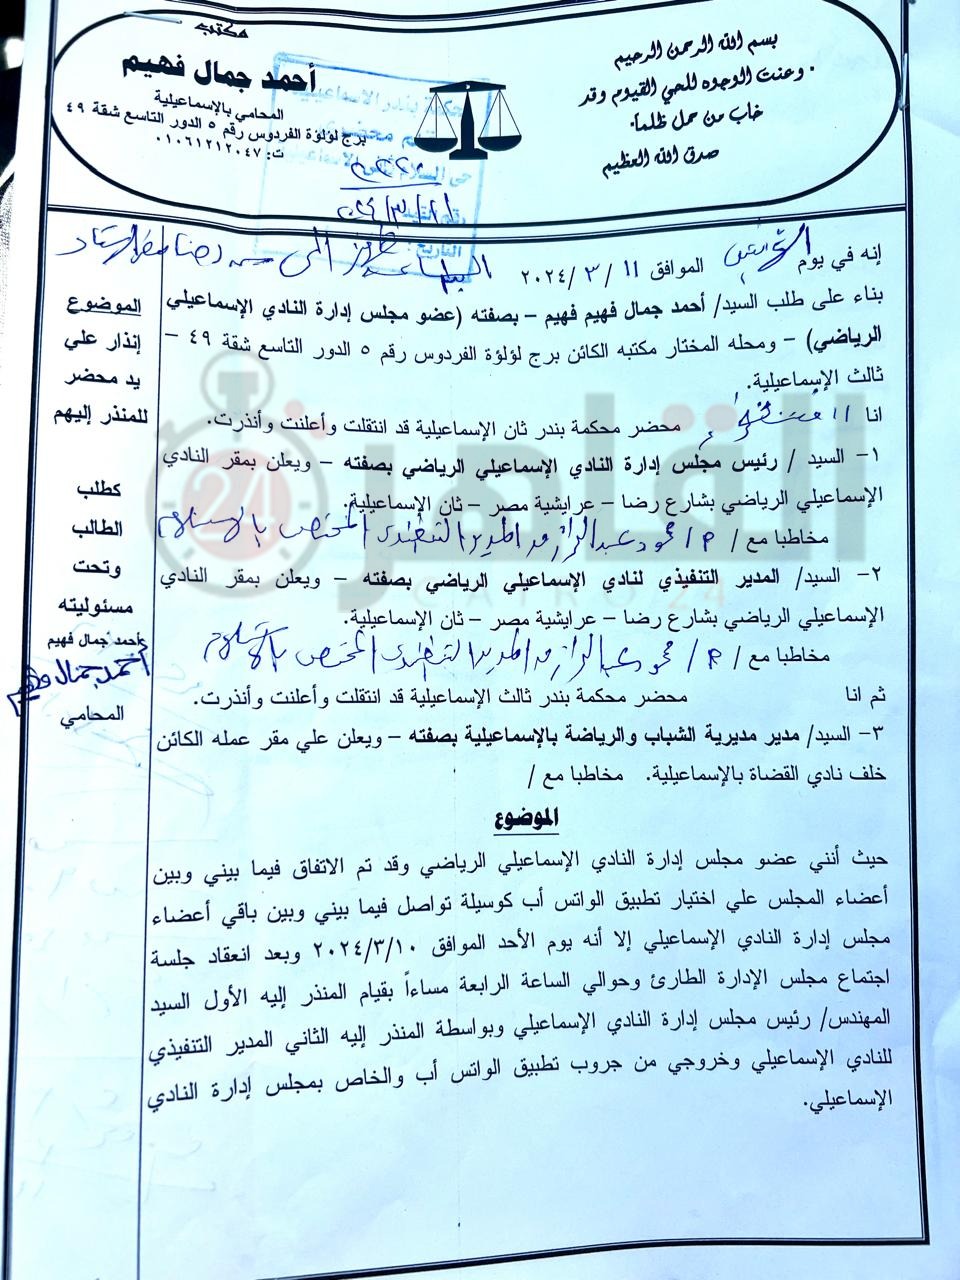 مكتب
أحمد جمال فهيم
المحامي بالإسماعيلية
برج لؤلؤة الفردوس رقم ٥ الدور التاسع شقة ٤٩
ت: ٠١٠٦١٢١٢٠٤٧
بسم الله الرحمن الرحيم
وعنت الوجوه للحي القيوم وقد
خاب من حمل ظلما.
صدق الله العظيم
التاريخ:
إنه في يوم الموافق ١١ / ٣ / ٢٠٢٤
بناء على طلب السيد/ أحمد جمال فهيم فهيم – بصفته (عضو مجلس إدارة النادي الإسماعيلي
الرياضي) – ومحله المختار مكتبه الكائن برج لؤلؤة الفردوس رقم ٥ الدور التاسع شقة ٤٩ –
ثالث الإسماعيلية.
انا محضر محكمة بندر ثان الإسماعيلية قد انتقلت وأعلنت وأنذرت.
١- السيد / رئيس مجلس إدارة النادي الإسماعيلي الرياضي بصفته – ويعلن بمقر النادي
الإسماعيلي الرياضي بشارع رضا – عرايشية مصر – ثان الإسماعيلية.
مخاطبا مع / م / محمود عبد الرازق المدير التنفيذي المختص بالاستلام
٢- السيد/ المدير التنفيذي لنادي الإسماعيلي الرياضي بصفته – ويعلن بمقر النادي
الإسماعيلي الرياضي بشارع رضا – عرايشية مصر – ثان الإسماعيلية.
مخاطبا مع / م / محمود عبد الرازق المدير التنفيذي المختص بالاستلام
ثم انا محضر محكمة بندر ثالث الإسماعيلية قد انتقلت وأعلنت وأنذرت.
٣- السيد/ مدير مديرية الشباب والرياضة بالإسماعيلية بصفته – ويعلن علي مقر عمله الكائن
خلف نادي القضاة بالإسماعيلية. مخاطبا مع /
الموضوع
حيث أنني عضو مجلس إدارة النادي الإسماعيلي الرياضي وقد تم الاتفاق فيما بيني وبين
أعضاء المجلس علي اختيار تطبيق الواتس أب كوسيلة تواصل فيما بيني وبين باقي أعضاء
مجلس إدارة النادي الإسماعيلي إلا أنه يوم الأحد الموافق ٢٠٢٤/٣/١٠ وبعد انعقاد جلسة
اجتماع مجلس الإدارة الطارئ وحوالي الساعة الرابعة مساءاً بقيام المنذر إليه الأول السيد
المهندس/ رئيس مجلس إدارة النادي الإسماعيلي وبواسطة المنذر إليه الثاني المدير التنفيذي
للنادي الإسماعيلي وخروجي من جروب تطبيق الواتس أب والخاص بمجلس إدارة النادي
الإسماعيلي.
الموضوع
إنذار علي
يد محضر
للمنذر إليهم
كطلب
الطالب
وتحت
مسئوليته
أحمد جمال فهيم
أحمد جمال فهيم
المحامي
القاهرة
24
CAIRO 24